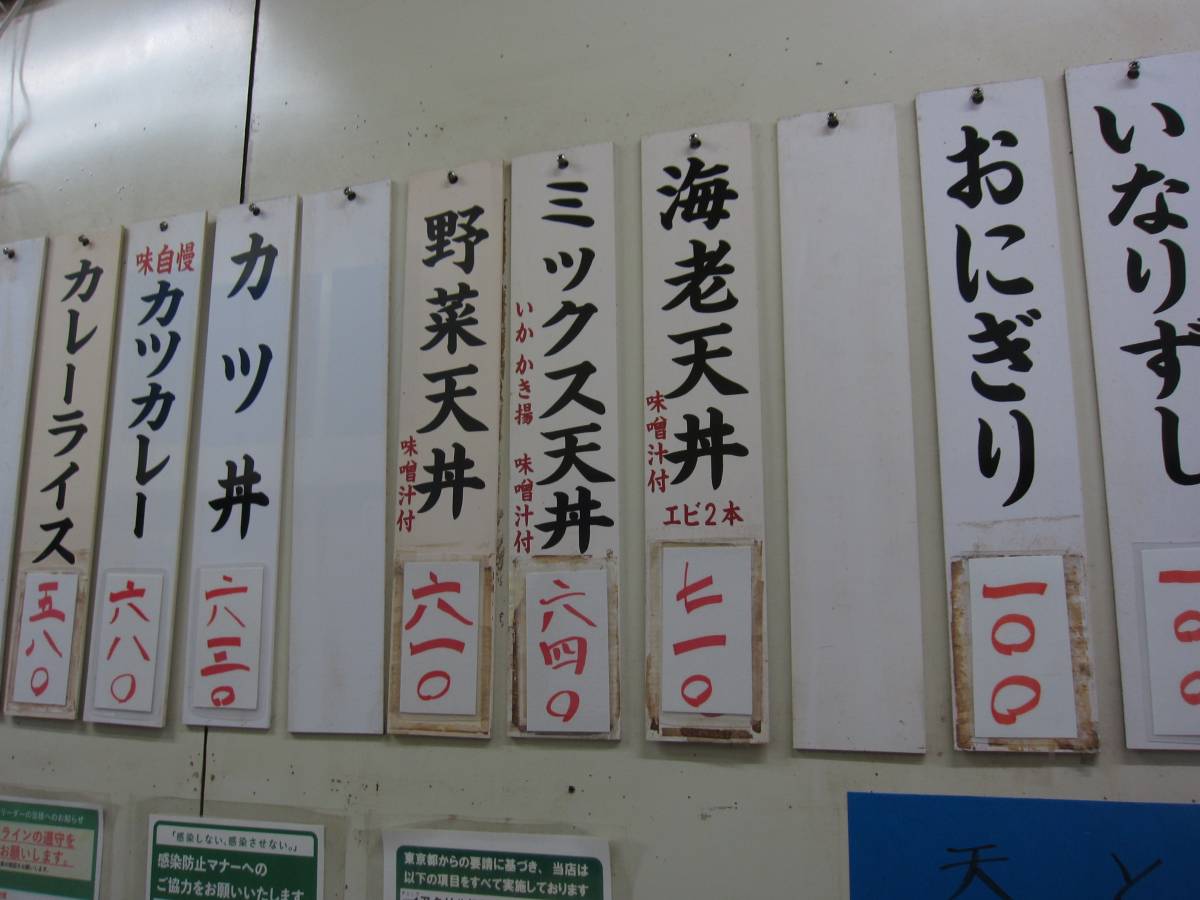 いなりずし
一〇〇
おにぎり
一〇〇
海老天丼
味噌汁付
エビ2本
七一〇
ミックス天丼
いか かき揚 味噌汁付
六四〇
野菜天丼
味噌汁付
六一〇
カツ丼
六三〇
味自慢
カツカレー
六八〇
カレーライス
五八〇
リーダーの皆様へのお知らせ
ラインの遵守を
お願いします。
「感染しない、感染させない。」
感染防止マナーへの
ご協力をお願いいたします
東京都からの要請に基づき、当店は
以下の項目をすべて実施しております
天 と